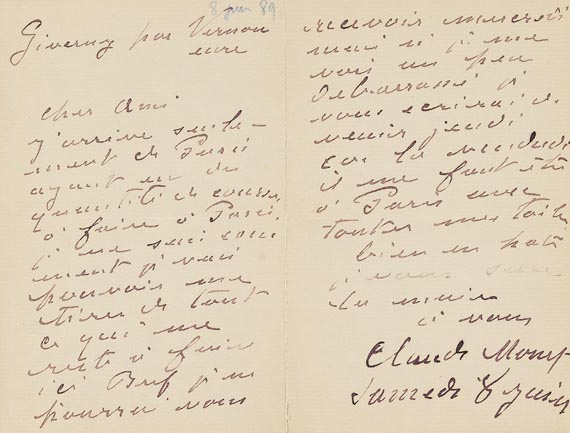 8 juin 89
Giverny par Vernon
eure
cher Ami
j'arrive seule-
ment de Paris
ayant eu du
quantité de courses
à faire à Paris,
je ne sais com
ment je vais
pouvoir me
tirer de tout
ce qui me
reste à faire
ici Bref je ne
pourrai vous
recevoir mercredi
mais si je me
vois un peu
débarrassé je
vous écrirai de
venir jeudi
car le vendredi
il me faut être
à Paris avec
toutes mes toiles
bien en hâte
je vous serre
la main
à vous
Claude Monet
Samedi 8 juin